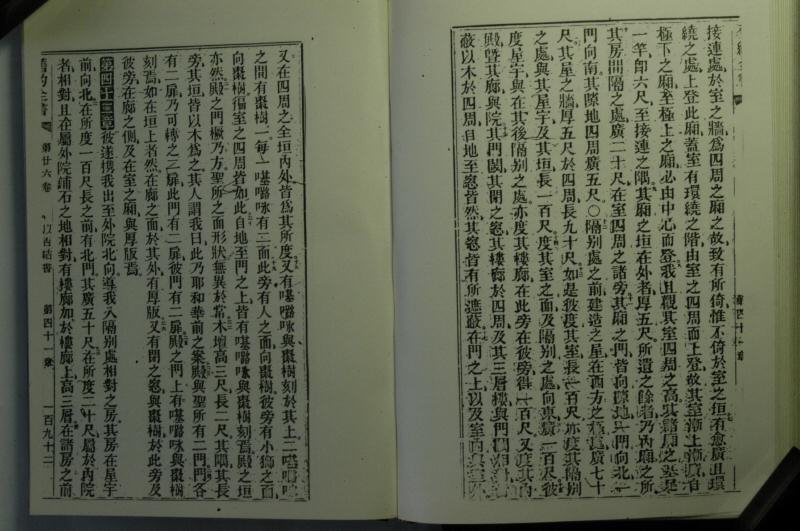 接連處於室之牆爲四周之廂之故致有所倚惟不倚於室之垣有愈廣且環
繞之處上登此廂蓋室有環繞之階由室之四周而上登故其室漸上漸廣自
極下之廂至極上之廂必由中心而登我且觀其室四周之高其諸廂之基是
一竿卽六尺至接連之隅其廂之垣在外者厚五尺所遺之餘者乃內廂之所
其房間隔之處廣二十尺在室四周之諸旁其廂之門皆向隙地一門向北一
門向南其隙地四周廣五尺○隔別處之前建造之屋在西方之極處廣七十
尺其屋之牆厚五尺於四周長九十尺如是彼度其室長一百尺亦度其隔別
之處與其屋宇及其垣長一百尺度其室之面及隔別之處向東廣一百尺彼
度屋宇與在其後隔別之處亦度其樓廊在此旁在彼旁得一百尺又度其內
殿曁其廊與院其門閾其閉之窓其樓廊於四周及其三層樓與門閾相對
蔽以木於四周自地至窓皆然其窓皆有所遮蔽在門之上以及室內
又在四周之全垣內外皆爲其所度又有𠼻嚕咏與棗樹刻於其上二𠼻嚕咏
之間有棗樹一每一𠼻嚕咏有二面此旁有人之面向棗樹彼旁有小獅之面
向棗樹徧室之四周皆如此自地至門之上皆有𠼻嚕咏與棗樹刻焉殿之垣
亦然殿之門橛乃方聖所之面形狀無異於常木壇高三尺長二尺其隅其長
旁其垣皆以木爲之其人謂我曰此乃耶和華前之案殿與聖所有二門門各
有二扉乃可轉之二扉此門有二扉彼門有二扉殿之門上有𠼻嚕咏與棗樹
刻焉如在垣上者然在廊之面於其外有厚版又有閉之窓與棗樹於此旁及
彼旁在廊之側及在室之廂與厚版焉
第四十二章彼遂携我出至外院北向導我入隔別處相對之房其房在屋宇
前向北在所度一百尺長之前有北門其廣五十尺在所度二十尺屬於內院
者相對且在屬外院鋪石之地相對有樓廊加於樓廊上高三層在諸房之前
舊約全書
第廿六卷
以西結書
第四十一章
一百九十二